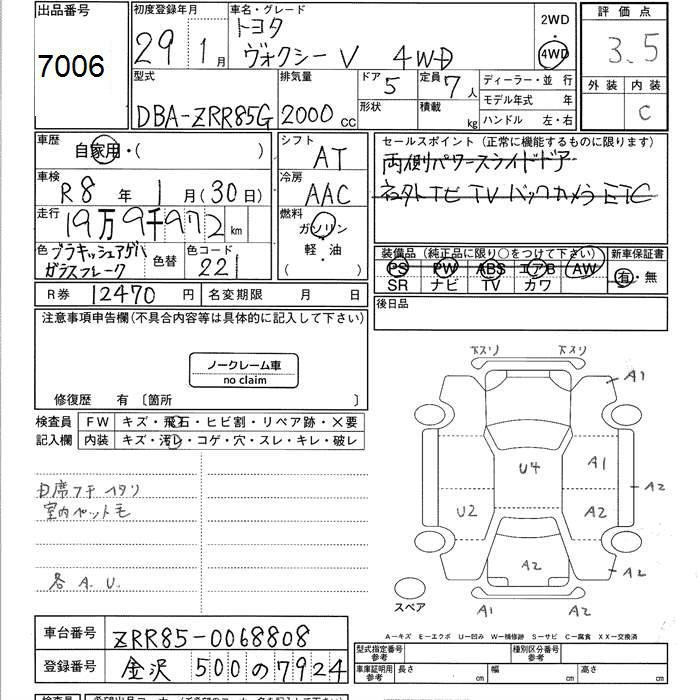 出品番号
7006
初度登録年月
29 1月
車名・グレード
トヨタ
ヴォクシー V 4WD
2WD
4WD
評価点
3.5
外装 内装
C
型式
DBA-ZRR85G
排気量
2000 cc
ドア 5
形状
定員 7人
積載 kg
ディーラー・並 行
モデル年式 年
ハンドル 左・右
車歴
自家用・( )
車検
R8年 1月(30日)
走行
19万9千972 km
色 ブラキッシュアゲハ
ガラスフレーク
色替
色コード
221
シフト
AT
冷房
AAC
燃料
ガソリン
・
軽・油
( )
セールスポイント(正常に機能するものに限ります)
両側パワースライドドア
TV バックカメラ ETC
装備品(純正品に限り○をつけて下さい)
PS PW ABS エアB AW
SR ナビ TV カワ
新車保証書
有・無
R券 12470円
名変期限 月 日
後日品
注意事項申告欄(不具合内容等は具体的に記入して下さい)
ノークレーム車
no claim
修復歴 有〔箇所 〕
検査員
記入欄
FW キズ・飛石・ヒビ割・リペア跡・×要
内装 キズ・汚レ・コゲ・穴・スレ・キレ・破レ
室内ペット毛
各A.U.
下スリ 下スリ
A1
U4
A1
A2
U2
A2
A2
A2
A1 A2
スペア
A-キズ E-エクボ U-凹み W-補修跡 S-サビ C-腐食 XX-交換済
車台番号 ZRR85-0068808
登録番号 金沢 500 の 7924
型式指定番号
参考
種別区分番号
参考
車庫証明用
参考
長さ cm 幅 cm 高さ cm